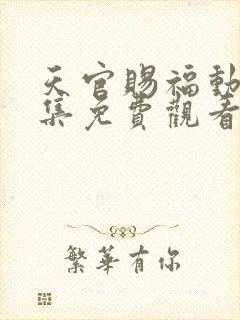 天官賜福動
集免費觀看
繁華有你